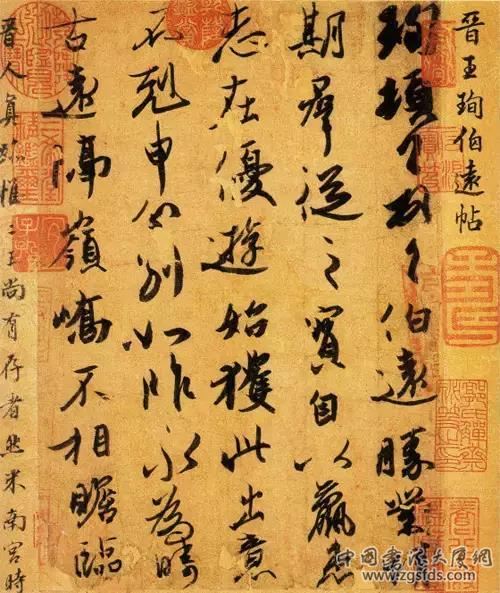 晉王珣伯遠帖
珣頓首頓首伯遠勝業情
期羣從之寶自以羸患
志在優遊始獲此出意
不剋申分別如昨永為疇
古遠隔嶺嶠不相瞻臨
晉人真跡惟二王尚有存者然米南宮時
中国書法大厦網
www.zgsfds.com